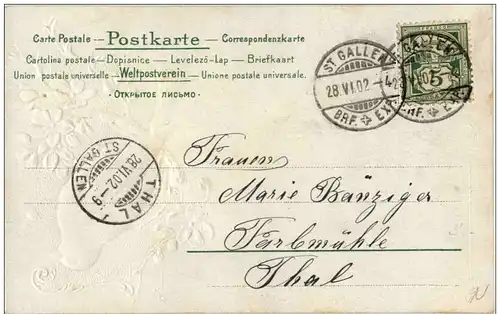 Carte Postale – Postkarte – Correspondenzkarte
Cartolina postale – Dopisnice – Levelező-Lap – Briefkaart
Union postale universelle – Weltpostverein – Unione postale universale.
- Открытое письмо. -
ST. GALLEN
28.VI.02 – 4
BRF. EXP.
ST. GALLEN
28.VI.02
BRF. EXP.
FRANCO
5
THAL
28.VI.02 – 9
ST. GALLEN
Frauen
Marie Bänziger
Farbmühle
Thal